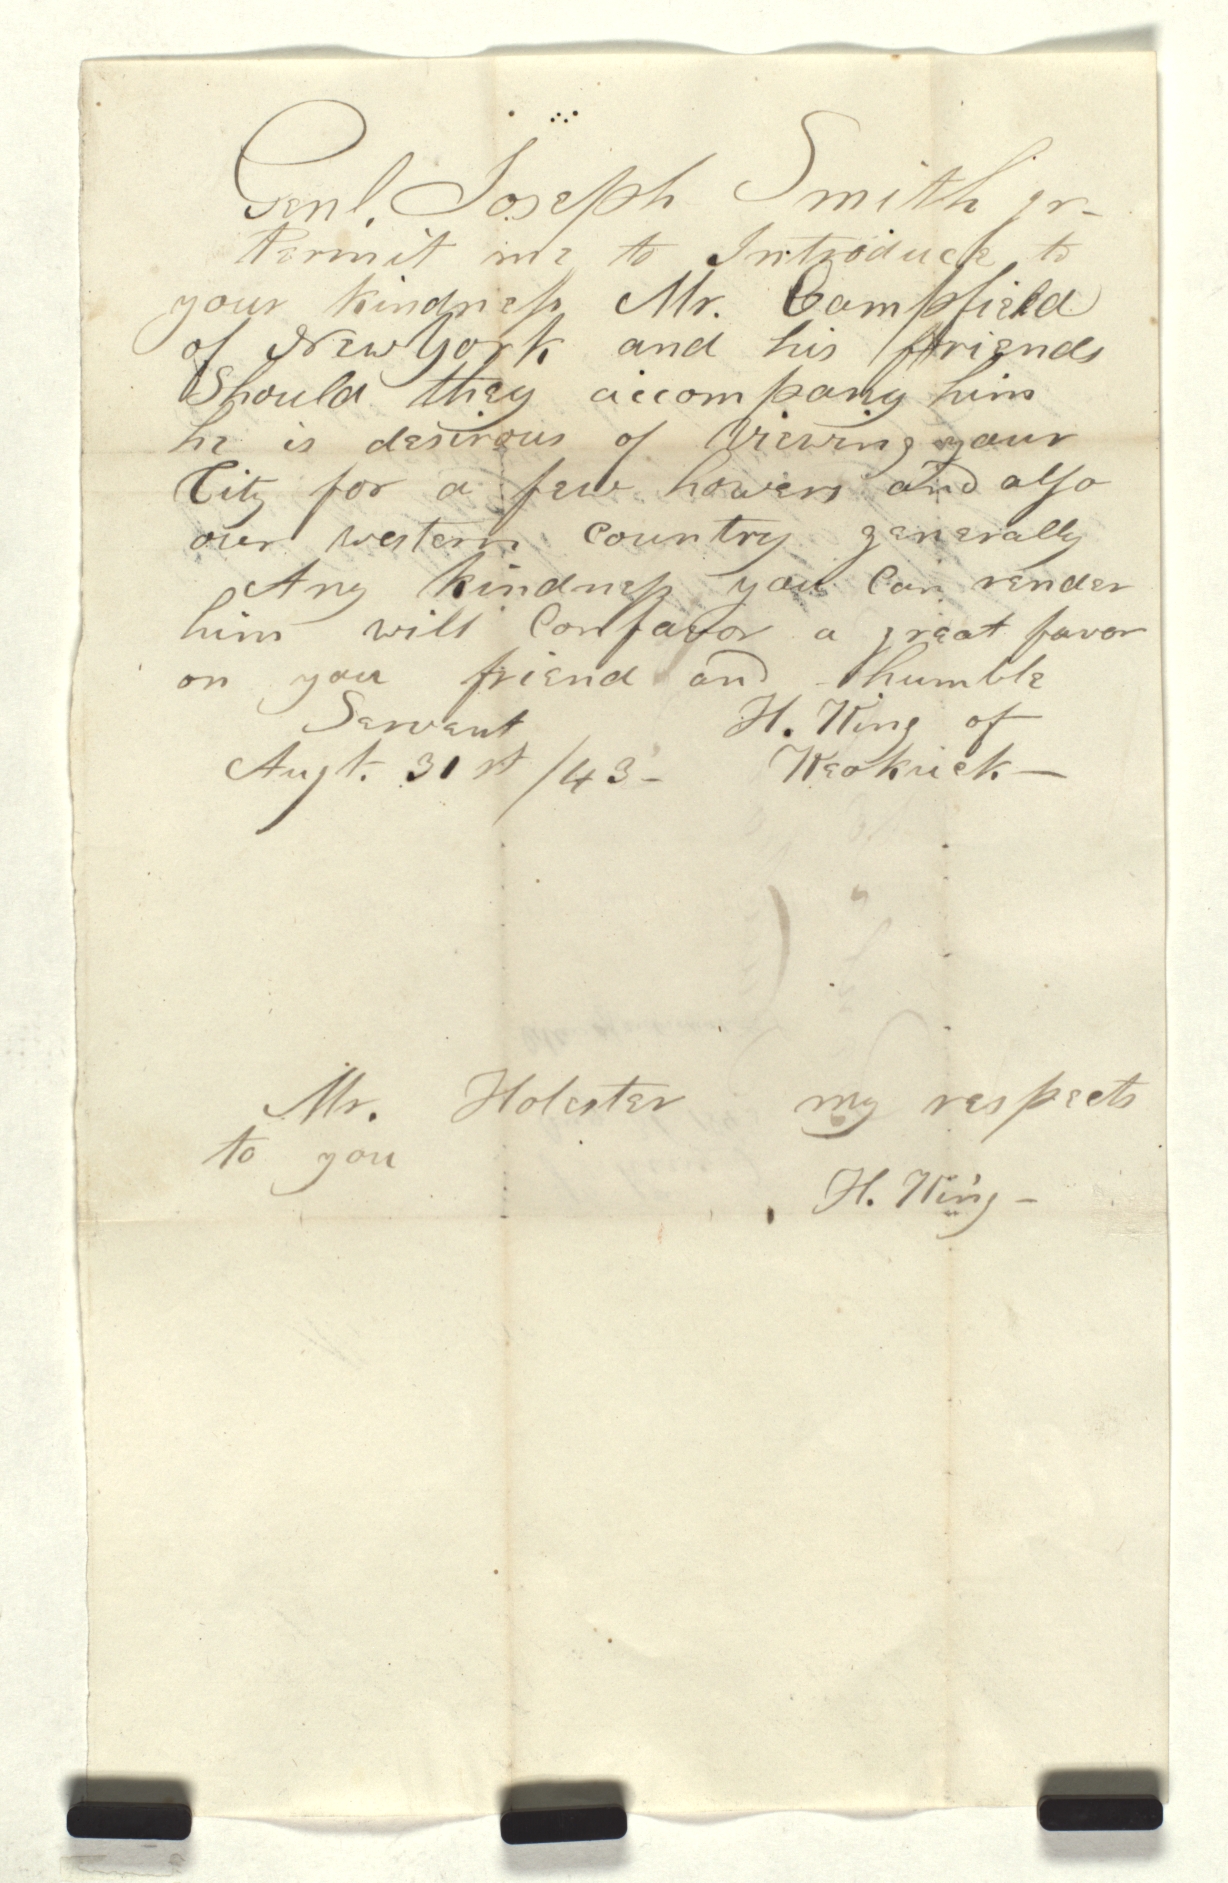 Genl. Joseph Smith jr-
Permit me to Introduce to
your kindness Mr. Campfield
of New York and his friends
Should they accompany him
he is desirous of Viewing your
City for a few howers and also
our western Country generally
Any kindness you Can render
him will Confavor a great favor
on you friend and humble
Servent H. King of
Augt. 31st /43- Keokuck—
Mr. Holester my respects
to you
H. King-